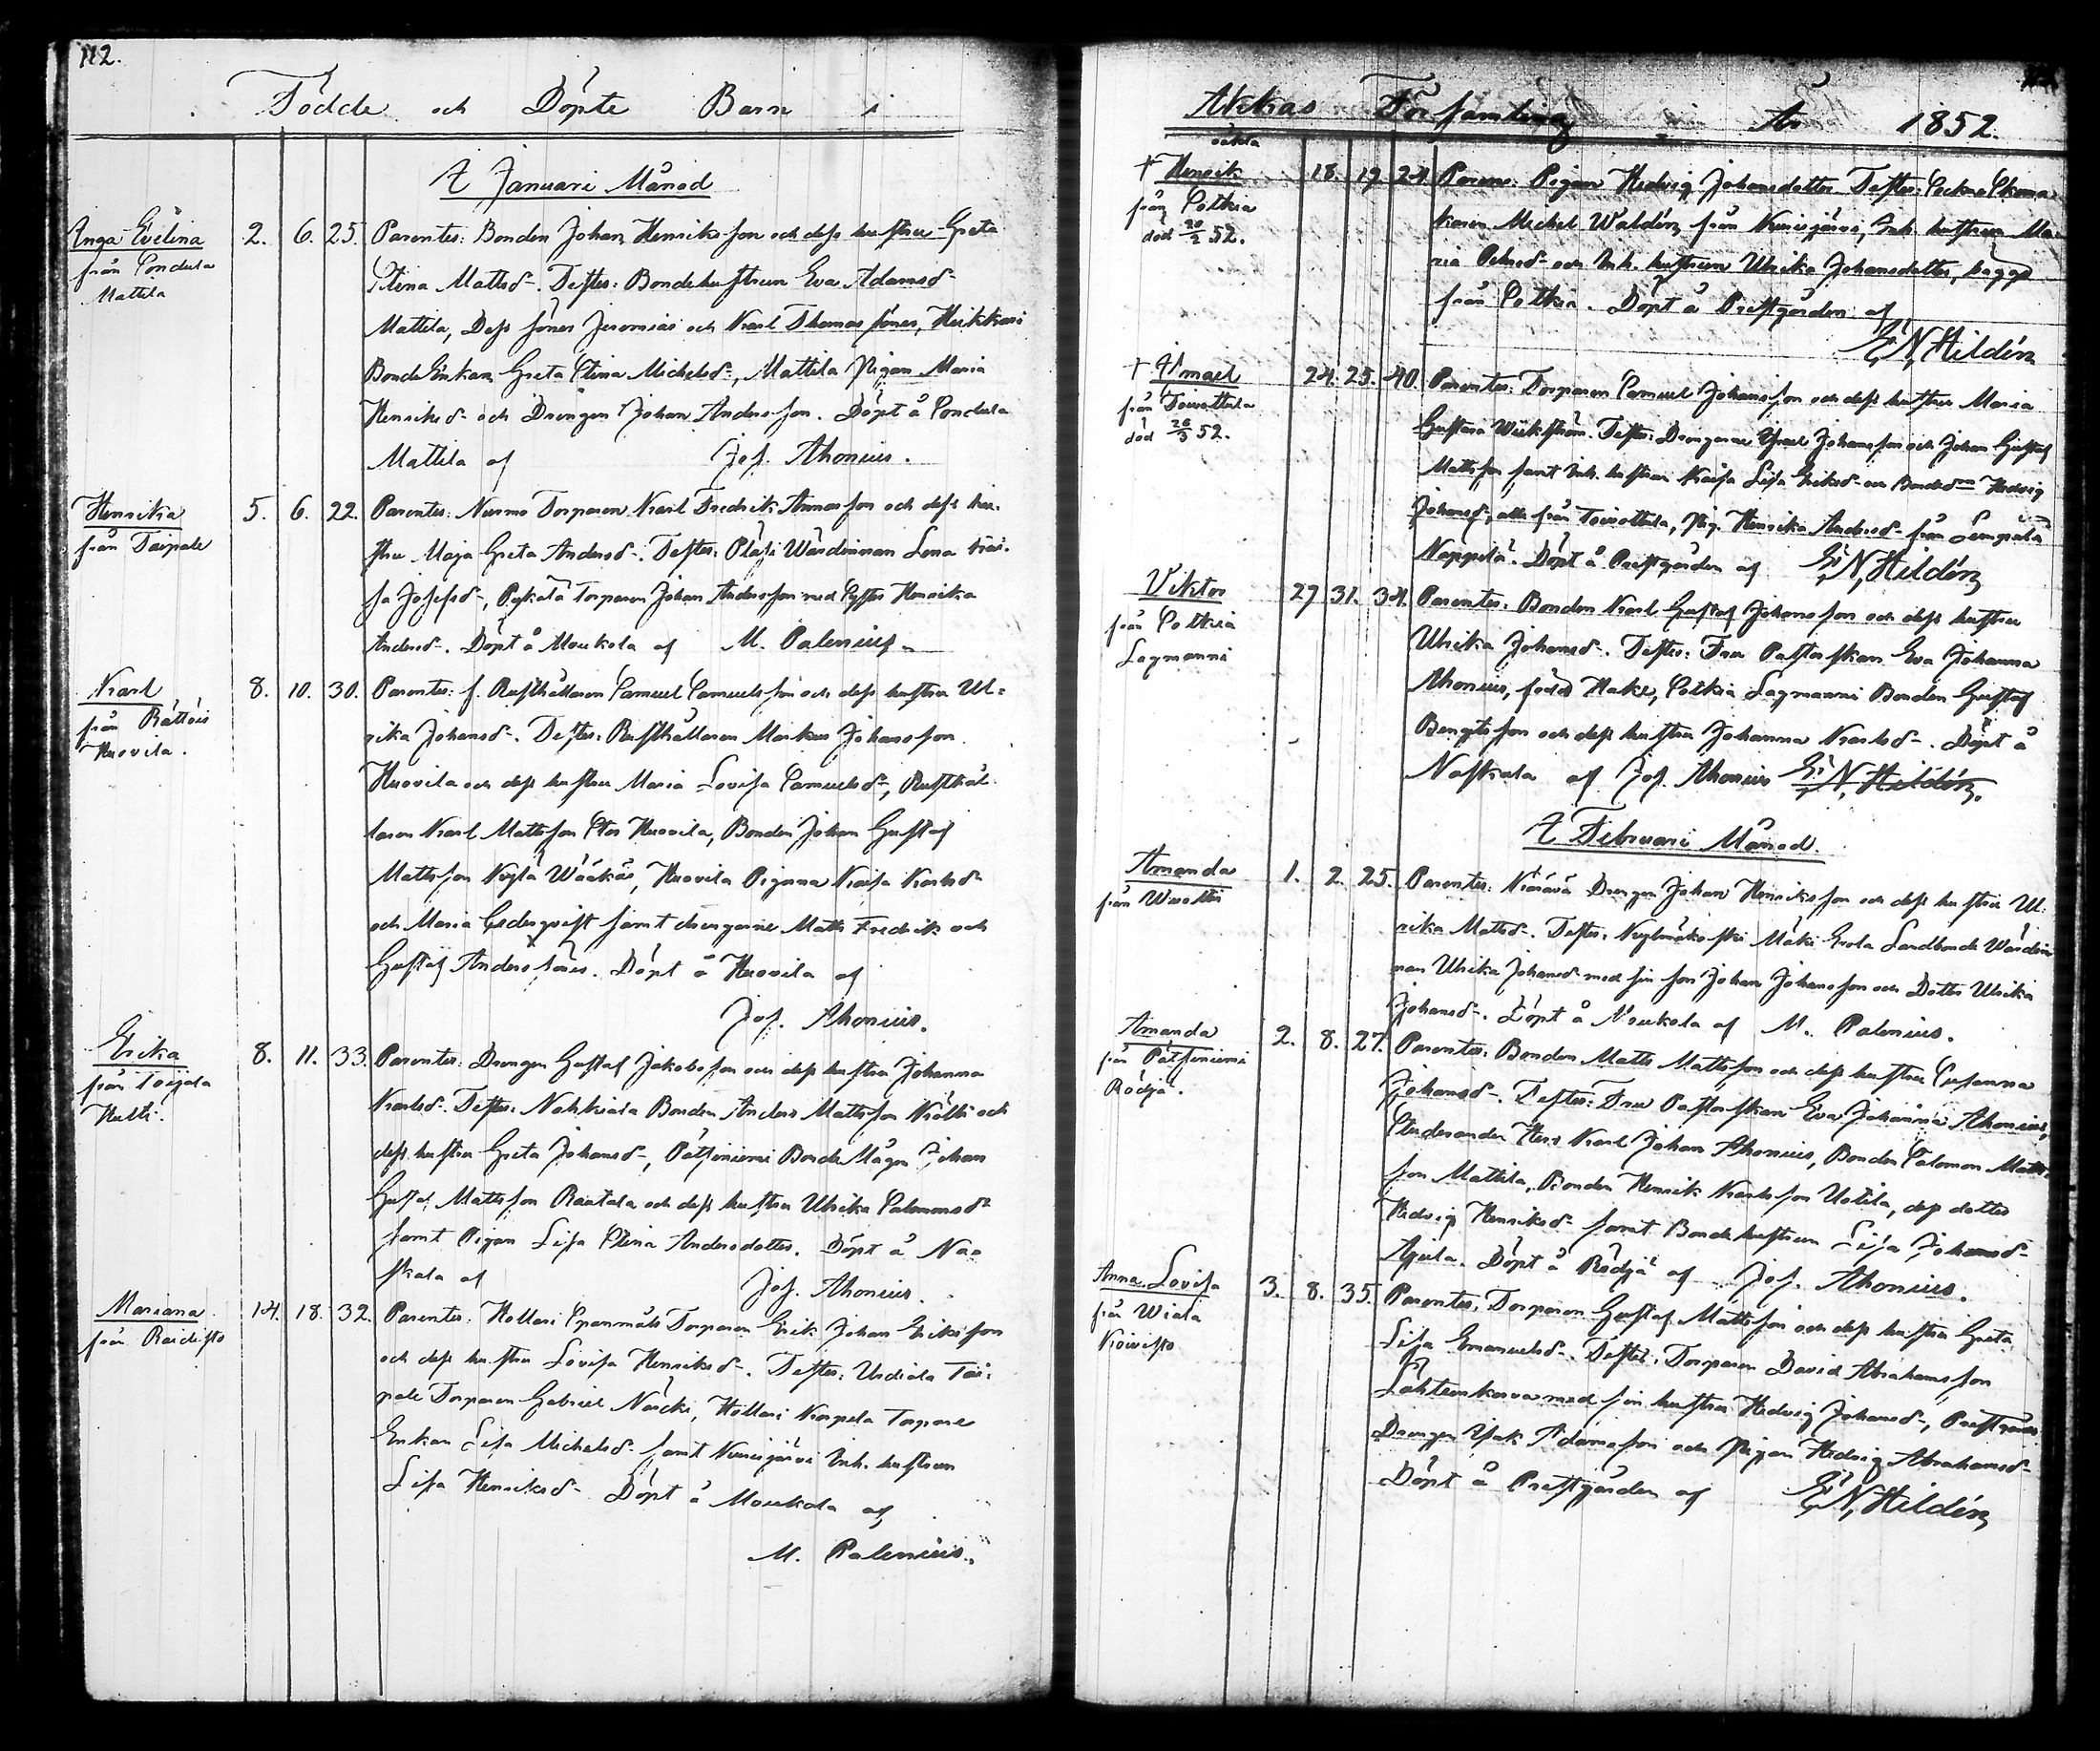 112.
Födde och Döpte Barn i
I Januari Månad
Inga Evelina 2. 6. 25. Parentes: Bonden Johan Henriksson och dess hustru Greta
från Sondula Stina Mattsd. Testes: Bondehustrun Eva Adamsd
Mattila Mattila, Dess söner Jeremias och Karl Thomas söner,
Bonde Enkan Greta Stina Michelsd:, Mattila Pigan Maria
Henriksd och Drengen Johan Andersson. Döpt å Sondula
Mattila af Jos. Ahonius.
Henrika 5. 6. 22. Parentes: Nurmo Torparen Karl Fredrik och dess hu-
från Taipale stru Maja Greta Andersd. Testes: Wärdinnan Lena Kai-
sa Josefsd, Torparen Johan Andersson med Syster Henrika
Andersd. Döpt å Moukola af M. Palenius
Karl 8. 10. 30. Parentes: f. Rusthållaren Samuel Samuelsson och dess hustru Ul-
från Rättöis rika Johansd. Testes: Rusthållaren Markus Johansson
Huovila. Huovila och dess hustru Maria Lovisa Samuelsd, Rusthål-
laren Karl Mattsson Huovila, Bonden Johan Gustaf
Mattsson Kylä Wääkäs, Huovila Pigorna Kaisa Karlsd
och Maria Cederqvist samt drengarne Matts Fredrik och
Gustaf Anders söner. Döpt å Huovila af
Jos. Ahonius.
Erika 8. 11. 33. Parentes: Drengen Gustaf Jakobsson och dess hustru Johanna
från Toijala Karlsd. Testes: Nahkiala Bonden Anders Mattsson och
Hulti. dess hustru Greta Johansd, Pätsiniemi Bonde Mågen Johan
Gustaf Mattsson Rautala och dess hustru Ulrika Salomonsd
samt Pigan Lisa Stina Andersdotter. Döpt å Na-
skala af Jos. Ahonius.
Mariana 14. 18. 32. Parentes: Hollari Torparen Erik Johan Eriksson
från och dess hustru Lovisa Henriksd. Testes: Urdiala Tai-
pale Torparen Gabriel, Hollari Korpela Torpare
Enkan Lisa Michelsd samt Kurisjärvi Inh. hustrun
Lisa Henriksd Döpt å Moukola af
M. Palenius.
Akkas Församling År 1852.
oäkta
+ Henrik 18. 19. 24. Parens: Pigan Hedvig Johansdotter Testes: Sockne Skoma-
från Sotkia karen Michel Waldén från Kurisjärvi, Inh. hustrun Ma-
död 20/2 52. ria och Inh. hustrun Ulrika Johansdotter, bägge
från Sotkia. Döpt å Prestgården af
E. N. Hildén
+ Ismael 24. 25. 40. Parentes: Torparen Samuel Johansson och dess hustru Maria
från Toivottula Gustava Wickström. Testes: Drengarne Johansson och Johan Gustaf
död 26/3 52. Mattsson samt Inh. hustrun Kaisa Lisa Eriksd Hedvig
Johansd, alla från Toivottula, Pig. Henrika Andersd från Lempälä
Döpt å Prestgården af E. N. Hildén
Viktor 27 31. 34. Parentes: Bonden Karl Gustaf Johansson och dess hustru
från Sotkia Ulrika Johansd. Testes: Fru Pastorskan Eva Johanna
Lagmanni Ahonius, född Hake, Sotkia Lagmanni Bonden Gustaf
Bengtsson och dess hustru Johanna Karlsd. Döpt å
Naskala af Jos. Ahonius E. N. Hildén.
I Februari Månad.
Amanda 1. 2. 25. Parentes: Drengen Johan Henriksson och dess hustru Ul-
från rika Mattsd. Testes: Mäki Erola Landbonde Wärdin-
nan Ulrika Johansd med sin son Johan Johansson och Dotter Ulrika
Johansd. Döpt å Moukola af M. Palenius.
Amanda 2. 8. 27. Parentes: Bonden Matts Mattsson och dess hustru Susanna
från Pätsiniemi Johansd. Testes: Fru Pastorskan Eva Johanna Ahonius,
Rödjä. Studeranden Herr Karl Johan Ahonius, Bonden Salomon Matts-
son Mattila, Bonden Henrik Karlsson Uotila, dess dotter
Hedvig Henriksd samt Bondehustrun Lisa Johansd
Döpt å Rödjä af Jos. Ahonius.
Anna Lovisa 3. 8. 35. Parentes: Torparen Gustaf Mattsson och dess hustru Greta
från Wiala Lisa Emanuelsd. Testes: Torparen David Abrahamsson
Koivisto Lahtenkorva med sin hustru Hedvig Johansd, Prestgårds
Drengen Isak Adamsson och Pigan Hedvig Abrahamsd
Döpt å Prestgården af E. N. Hildén